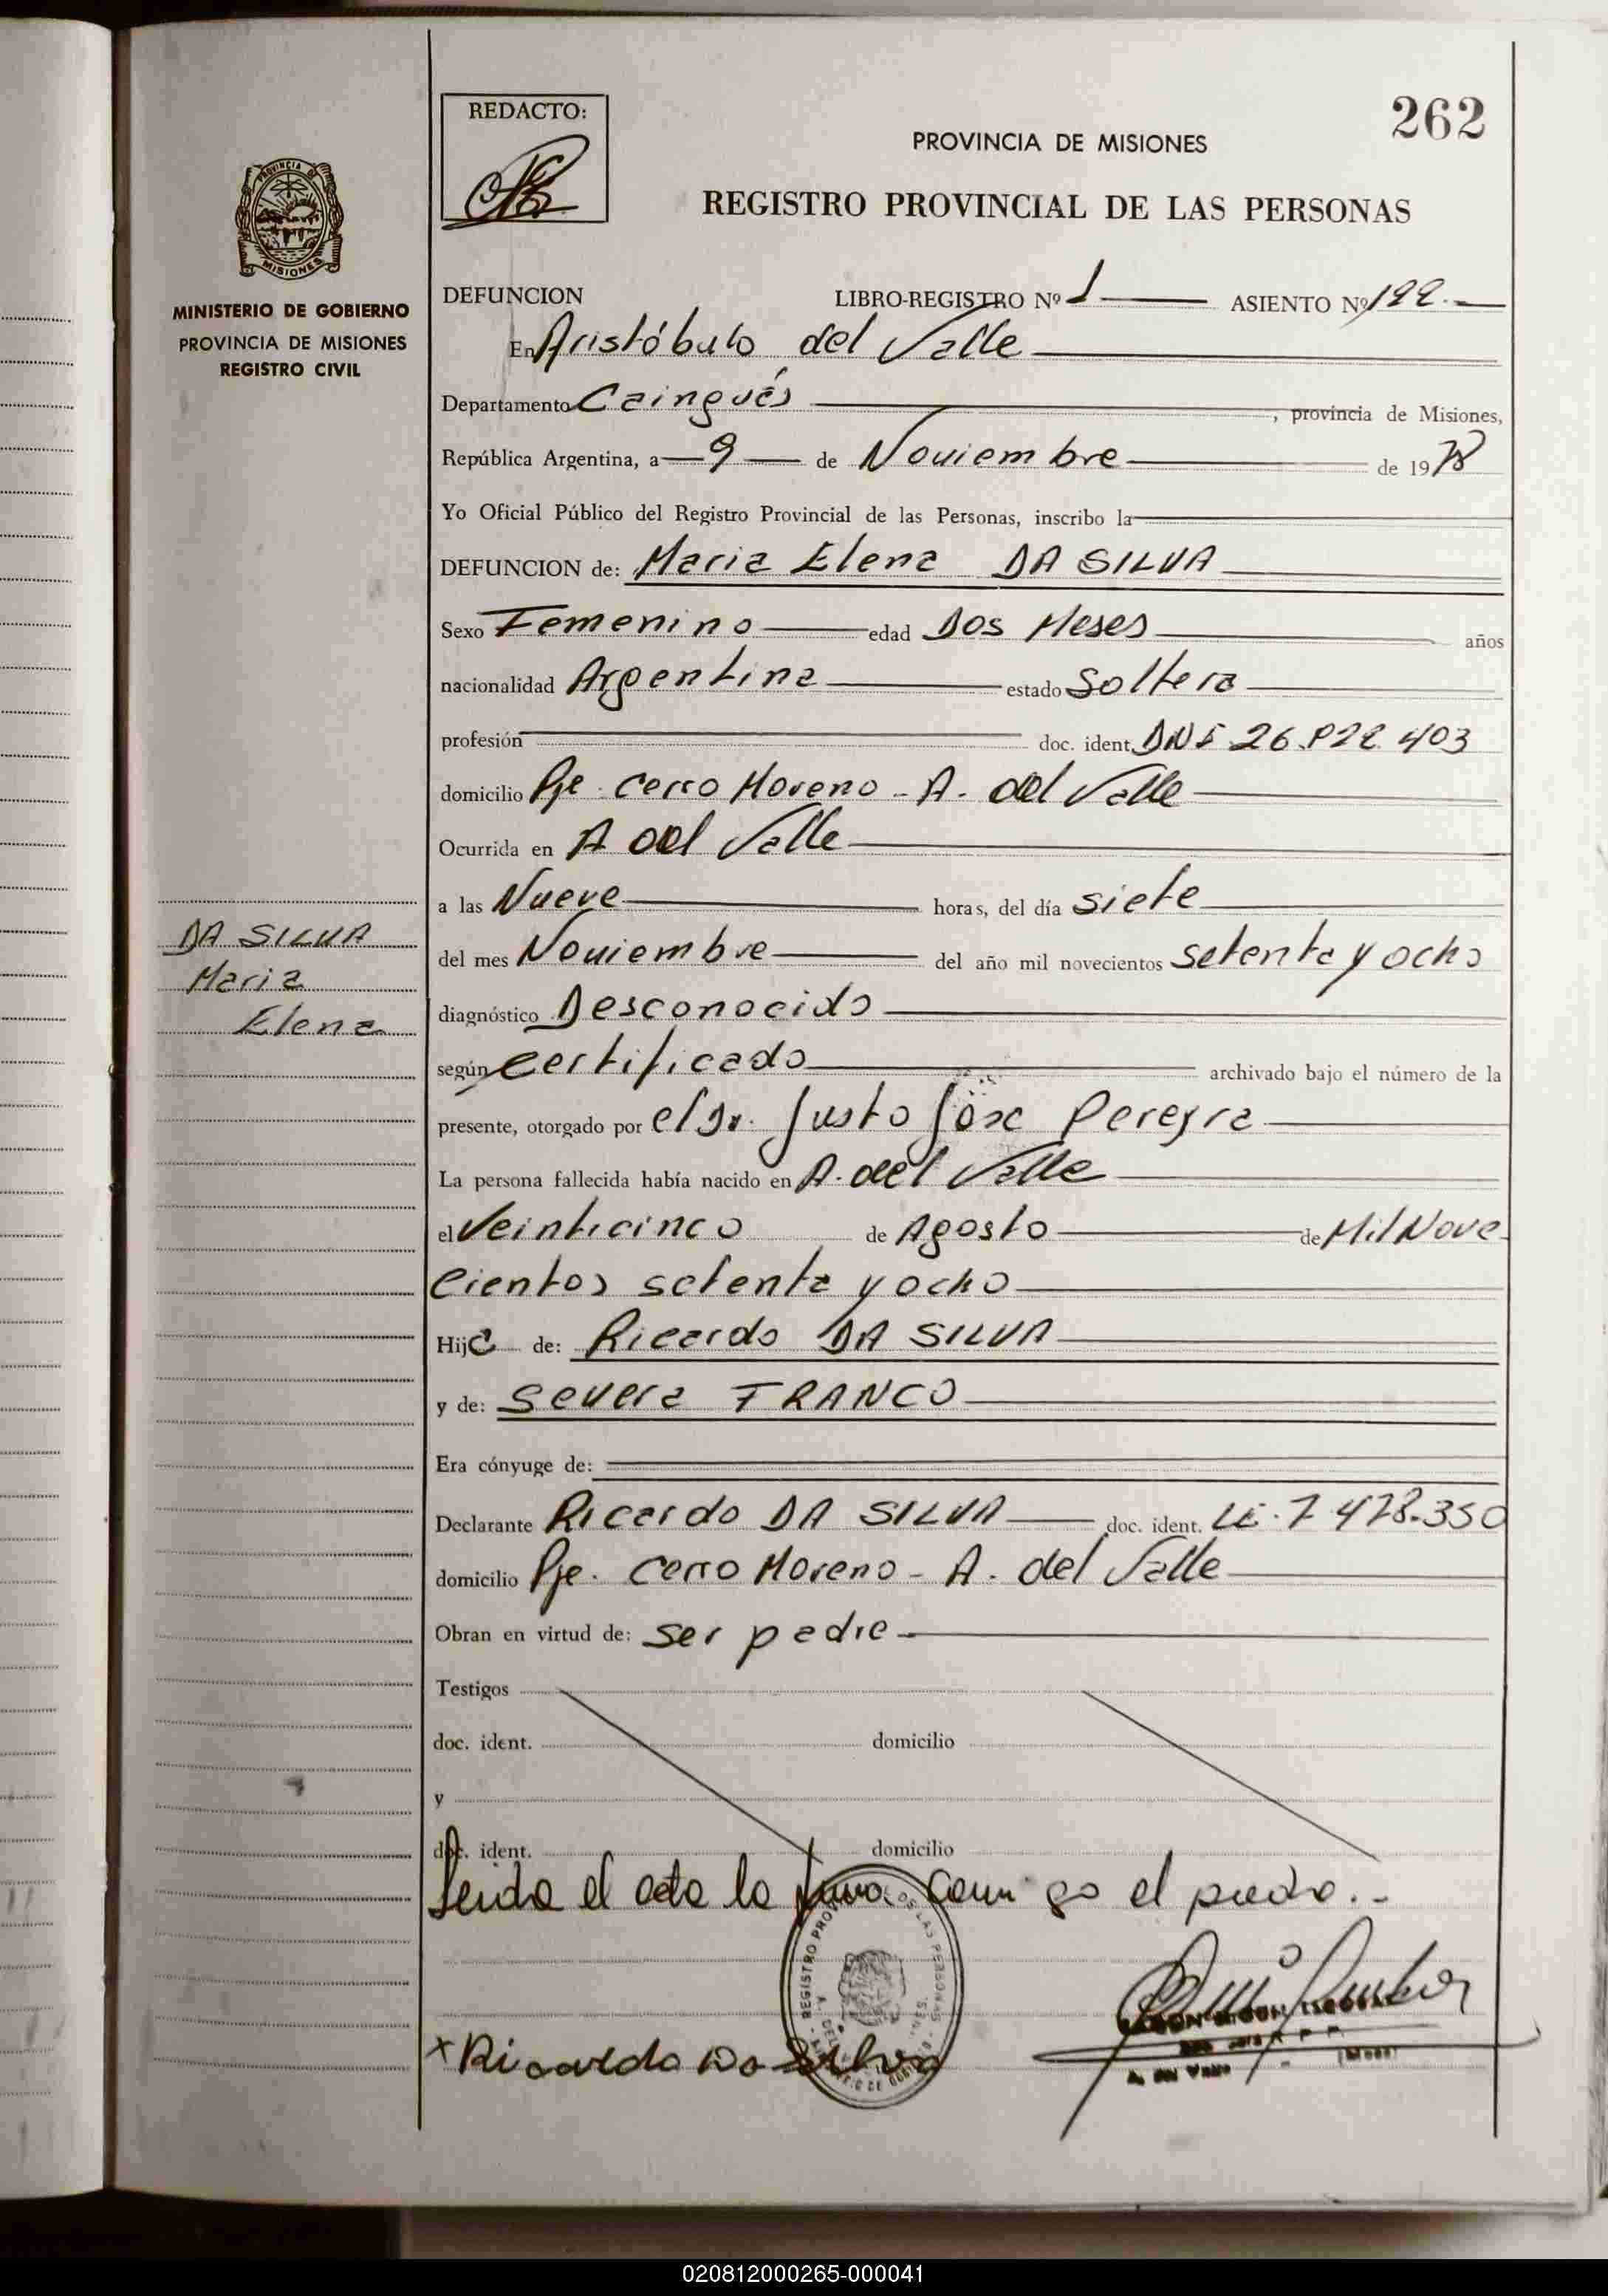 262
REDACTO:
PROVINCIA DE MISIONES
REGISTRO PROVINCIAL DE LAS PERSONAS
PROVINCIA DE
MISIONES
MINISTERIO DE GOBIERNO
PROVINCIA DE MISIONES
REGISTRO CIVIL
DEFUNCION LIBRO-REGISTRO Nº 1 ASIENTO Nº 122.
En Aristóbulo del Valle
Departamento Cainguás, provincia de Misiones,
República Argentina, a 9 de Noviembre de 1978
Yo Oficial Público del Registro Provincial de las Personas, inscribo la
DEFUNCION de: Maria Elena DA SILVA
Sexo Femenino edad Dos Meses años
nacionalidad Argentina estado Soltera
profesión doc. ident. DNI 26.822.403
domicilio Pje. Cerro Moreno - A. del Valle
Ocurrida en A del Valle
a las Nueve horas, del día siete
DA SILVA
Maria
Elena
del mes Noviembre del año mil novecientos setenta y ocho
diagnóstico Desconocido
según certificado archivado bajo el número de la
presente, otorgado por el Dr. Justo José Pereyra
La persona fallecida había nacido en A. del Valle
el Veinticinco de Agosto de Mil Nove
cientos setenta y ocho
Hija de: Ricardo DA SILVA
y de: Severa FRANCO
Era cónyuge de:
Declarante Ricardo DA SILVA doc. ident. LE. 7 478.350
domicilio Pje. Cerro Moreno - A. del Valle
Obran en virtud de: ser padre
Testigos
doc. ident. domicilio
y
doc. ident. domicilio
Leida el acta la firma conmigo el padre.-
REGISTRO PROVINCIAL DE LAS PERSONAS
x Ricardo Da Silva
A. del Valle
020812000265-000041